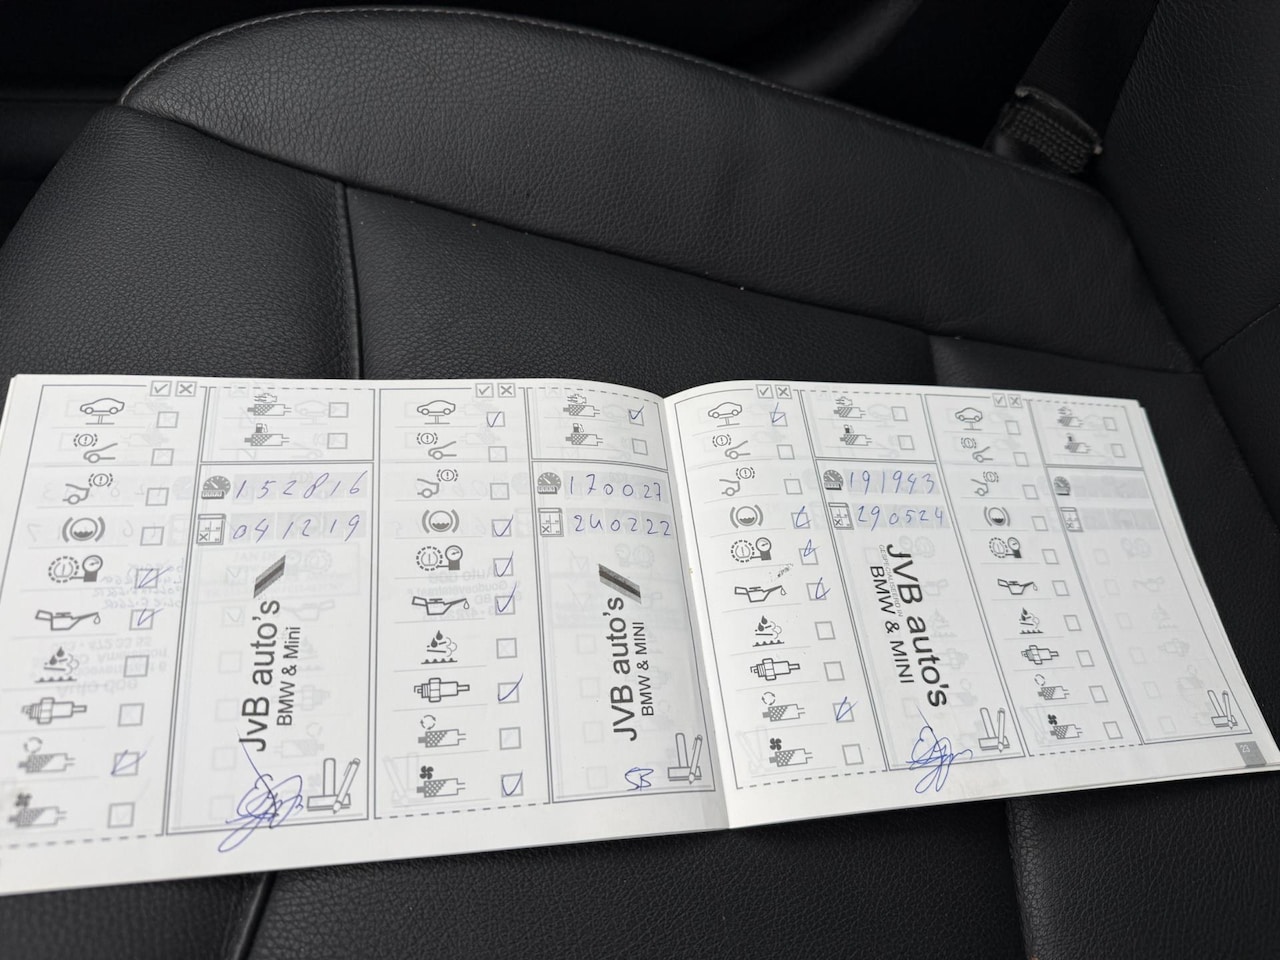 152816
041219
JvB auto's
BMW & Mini
170027
240222
JVB auto's
BMW & MINI
SB
191943
290524
JVB auto's
GESPECIALISEERD IN
BMW & MINI
23